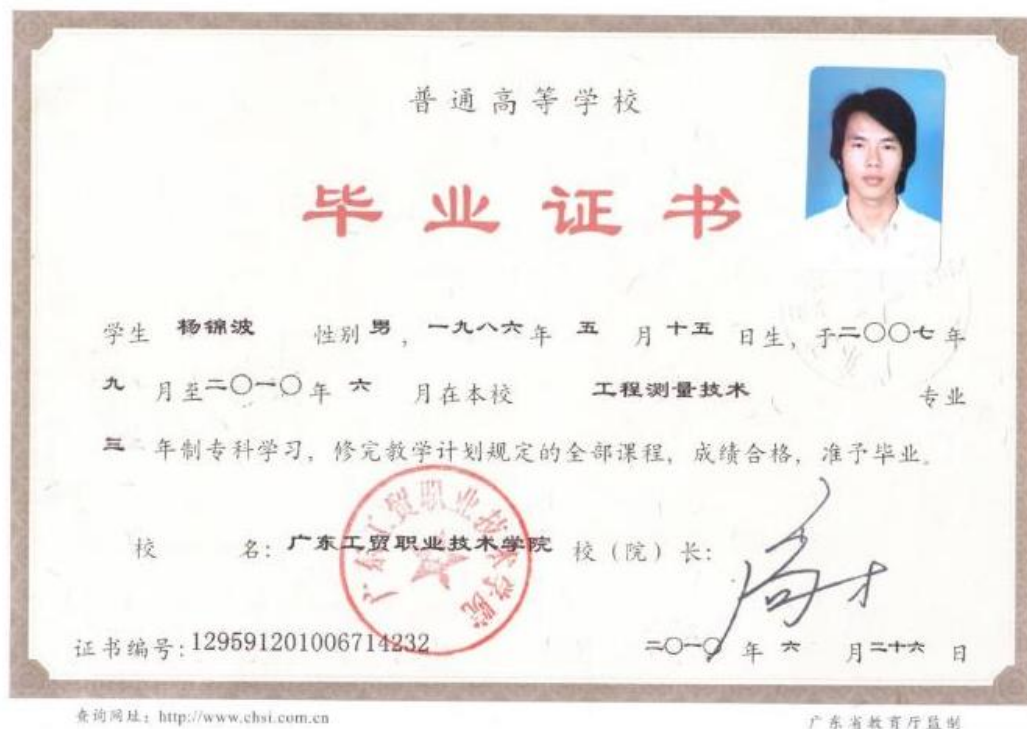 普通高等学校
毕业证书
学生 杨锦波 性别 男，一九八六年 五 月 十五 日生，于二〇〇七年
九 月至二〇一〇年 六 月在本校 工程测量技术 专业
三 年制专科学习，修完教学计划规定的全部课程，成绩合格，准予毕业。
校 名：广东工贸职业技术学院 校（院）长：
广东工贸职业技术学院
证书编号：129591201006714232 二〇一〇 年 六 月二十六 日
查询网址：http://www.chsi.com.cn 广东省教育厅监制